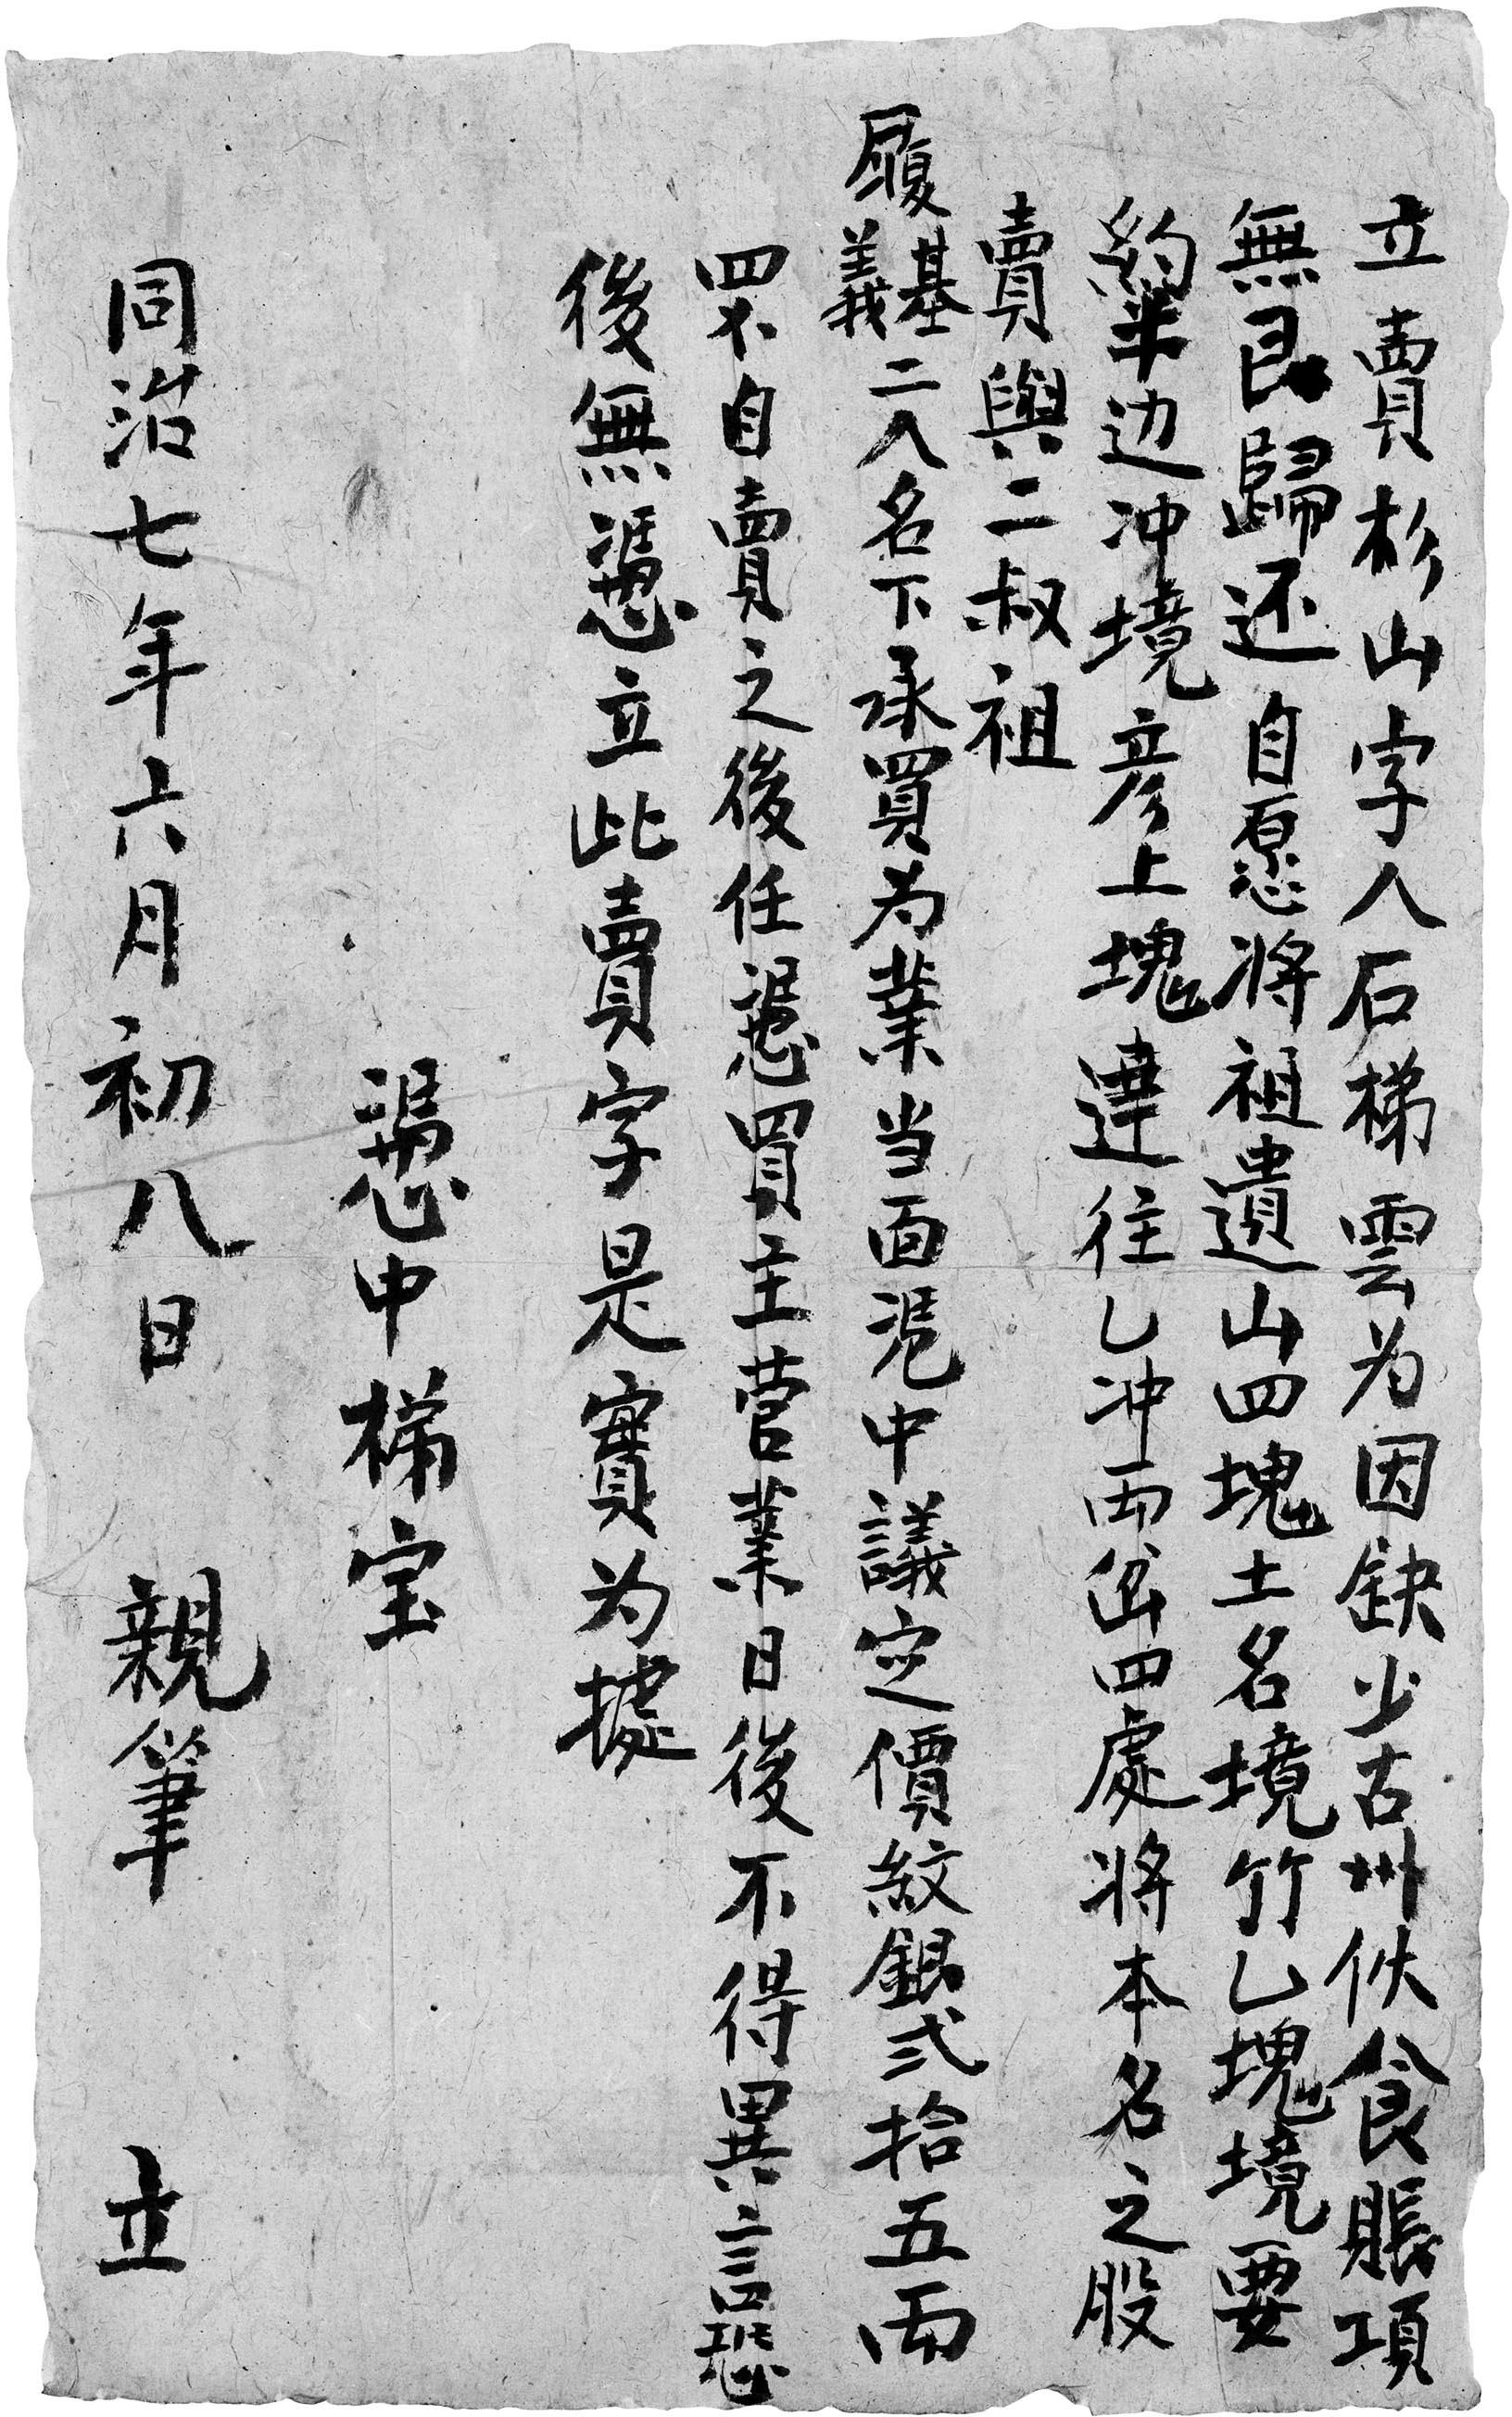 立賣杉山字人石梯雲为因缺少古州伙食賬項
無艮歸还自愿將祖遺山四塊土名境竹乚塊境要
約半边冲境彦上塊達往乚冲両岔四處將本名之股
賣與二叔祖
履基義二人名下承買为業当面凴中議定價紋銀弍拾五両
四不自賣之後任憑買主营業日後不得異言恐
後無憑立此賣字是實为據
憑中梯宝
同治七年六月初八日 親筆 立